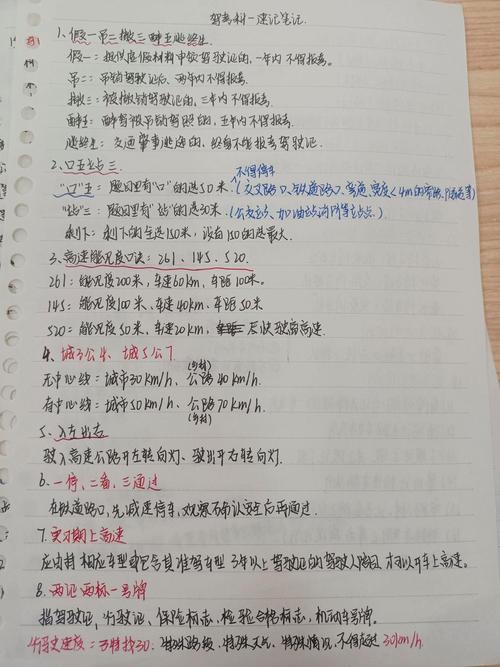 驾考科一速记笔记.
1、假一吊二撤三醉五逃终生.
假一：提供虚假材料申领驾驶证的，一年内不得报考。
吊二：吊销驾驶证后，两年内不得报考.
撤三：被撤销驾驶证的，三年内不得报考.
醉五：醉驾被吊销驾照的，五年内不得报考.
逃终生：交通肇事逃逸的，终身不能报考驾驶证.
2、口五站三.
不得停车
"口"五：题目里有"口"的选50米.(交叉路口、铁道路口、弯道、宽度<4m的窄桥、隧道等)
"站"三：题目里有"站"的选30米.(公交站、加油站消防等站点)
剩下：剩下的全选150米，没有150的选最大.
3、高速能见度口诀：261、145、520.
261：能见度200米，车速60km，车距100米。
145：能见度100米，车速40km，车距50米
520：能见度50米，车速20km，尽快驶离高速.
4、城3公4、城5公7
(乡村)
无中心线：城市30km/h、公路40km/h.
有中心线：城市50km/h、公路70km/h.
(乡村)
5、入左出右
驶入高速公路开左转向灯、驶出开右转向灯.
6、一停、二看、三通过
在铁道路口，先减速停车，观察确认安全后再通过.
7、实习期上高速
应由持相应车型或包含其准驾车型3年以上驾驶证的驾驶人陪同，才可以开车上高速。
8、两证两标一号牌
指驾驶证、行驶证、保险标志、检验合格标志、机动车号牌.
特殊路段、特殊天气、特殊情况、不得超过30km/h.